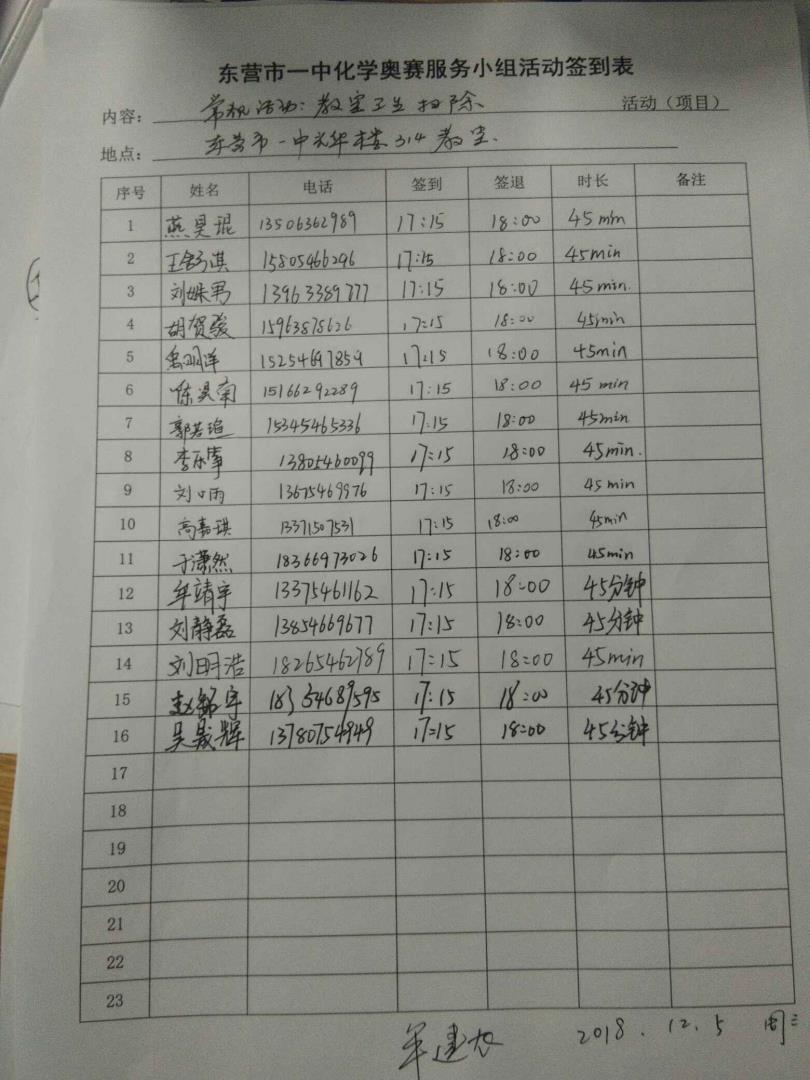 东营市一中化学奥赛服务小组活动签到表
内容：常规活动：教室卫生扫除 活动（项目）
地点：东营市一中光华楼314教室
序号 姓名 电话 签到 签退 时长 备注
1 燕昊琨 13506362989 17:15 18:00 45min
2 15805466246 17:15 18:00 45min
3 刘姝男 13963389777 17:15 18:00 45min.
4 胡贺骏 15963875626 17:15 18:00 45min
5 15254697859 17:15 18:00 45min
6 15166292289 17:15 18:00 45min
7 郭若瑄 15345465336 17:15 18:00 45min
8 13805460099 17:15 18:00 45min.
9 13675469976 17:15 18:00 45min
10 高嘉琪 13371507531 17:15 18:00 45min
11 于潇然 18366973026 17:15 18:00 45min
12 牟靖宇 13375461162 17:15 18:00 45分钟
13 刘静磊 13854669677 17:15 18:00 45分钟
14 刘明浩 18265462789 17:15 18:00 45min
15 赵铭宇 17:15 18:00 45分钟
16 吴晟辉 13780754949 17:15 18:00 45分钟
17
18
19
20
21
22
23
2018.12.5 周三